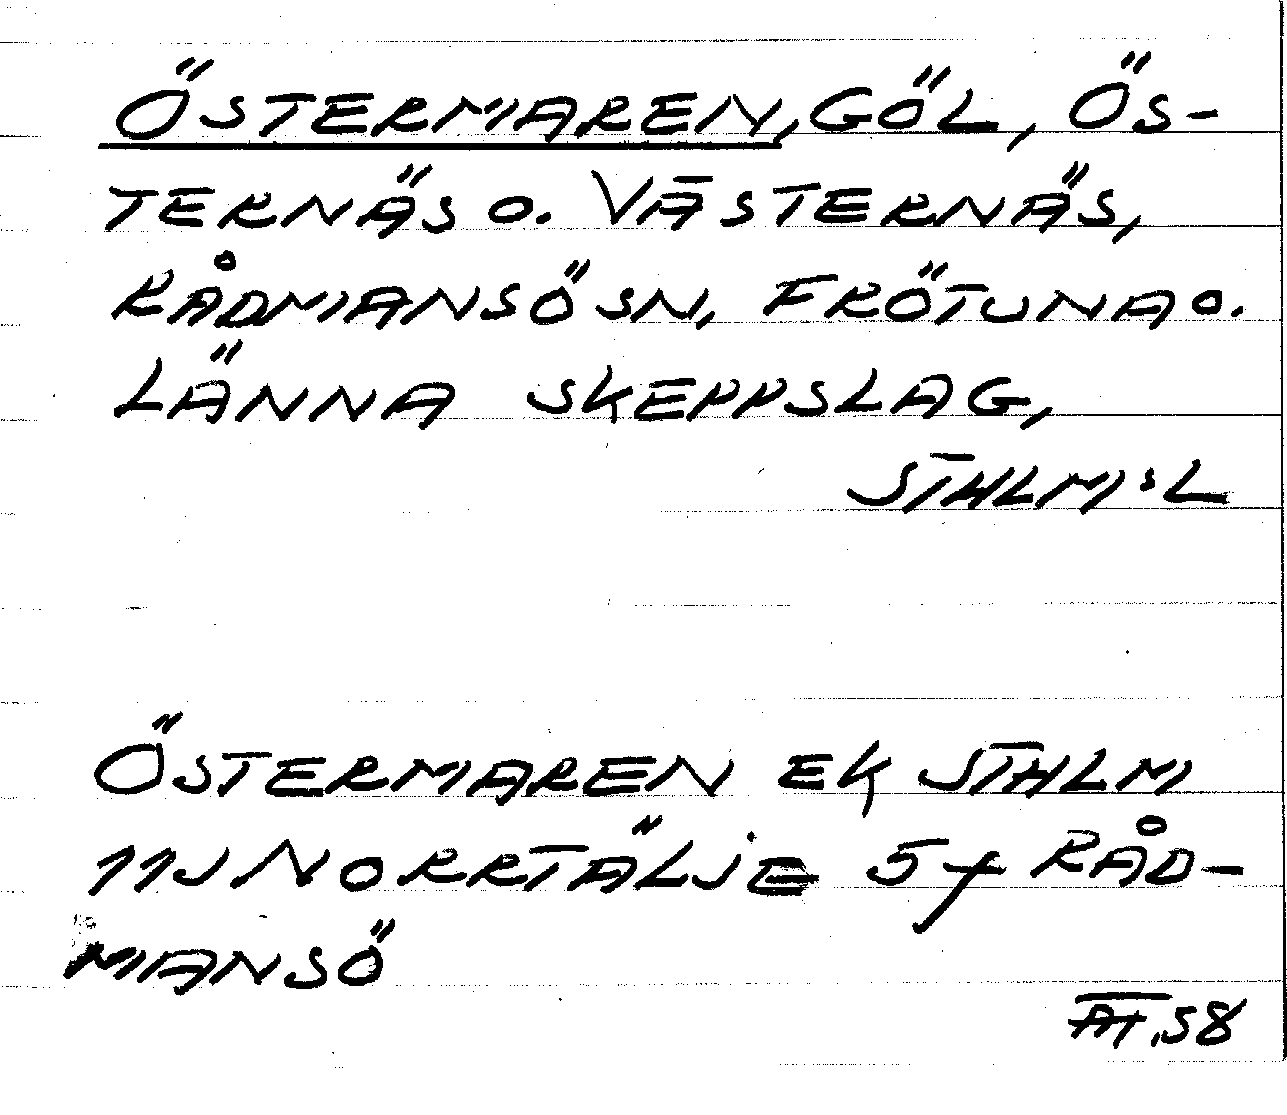 ÖSTERMAREN, GÖL, ÖS-
TERNÄS O. VÄSTERNÄS,
RÅDMANSÖ SN, FRÖTUNA O.
LÄNNA SKEPPSLAG,
STHLM:L
ÖSTERMAREN EK STHLM
11J NORRTÄLJE 5f RÅD-
MANSÖ
58